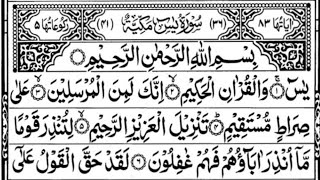 اٰيَاتُهَا ٨٣ (٣٦) سُوْرَةُ يٰسٓ مَكِّيَّةٌ (٤١) رُكُوْعَاتُهَا ٥
بِسْمِ اللهِ الرَّحْمٰنِ الرَّحِيْمِ
يٰسٓ ۝١ وَالْقُرْاٰنِ الْحَكِيْمِ ۝٢ اِنَّكَ لَمِنَ الْمُرْسَلِيْنَ ۝٣ عَلٰى
صِرَاطٍ مُّسْتَقِيْمٍ ۝٤ تَنْزِيْلَ الْعَزِيْزِ الرَّحِيْمِ ۝٥ لِتُنْذِرَ قَوْمًا
مَّاۤ اُنْذِرَ اٰبَآؤُهُمْ فَهُمْ غٰفِلُوْنَ ۝٦ لَقَدْ حَقَّ الْقَوْلُ عَلٰۤى